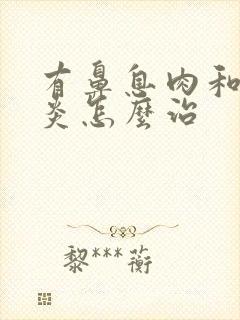 有鼻息肉和
炎怎麼治
黎***蘅